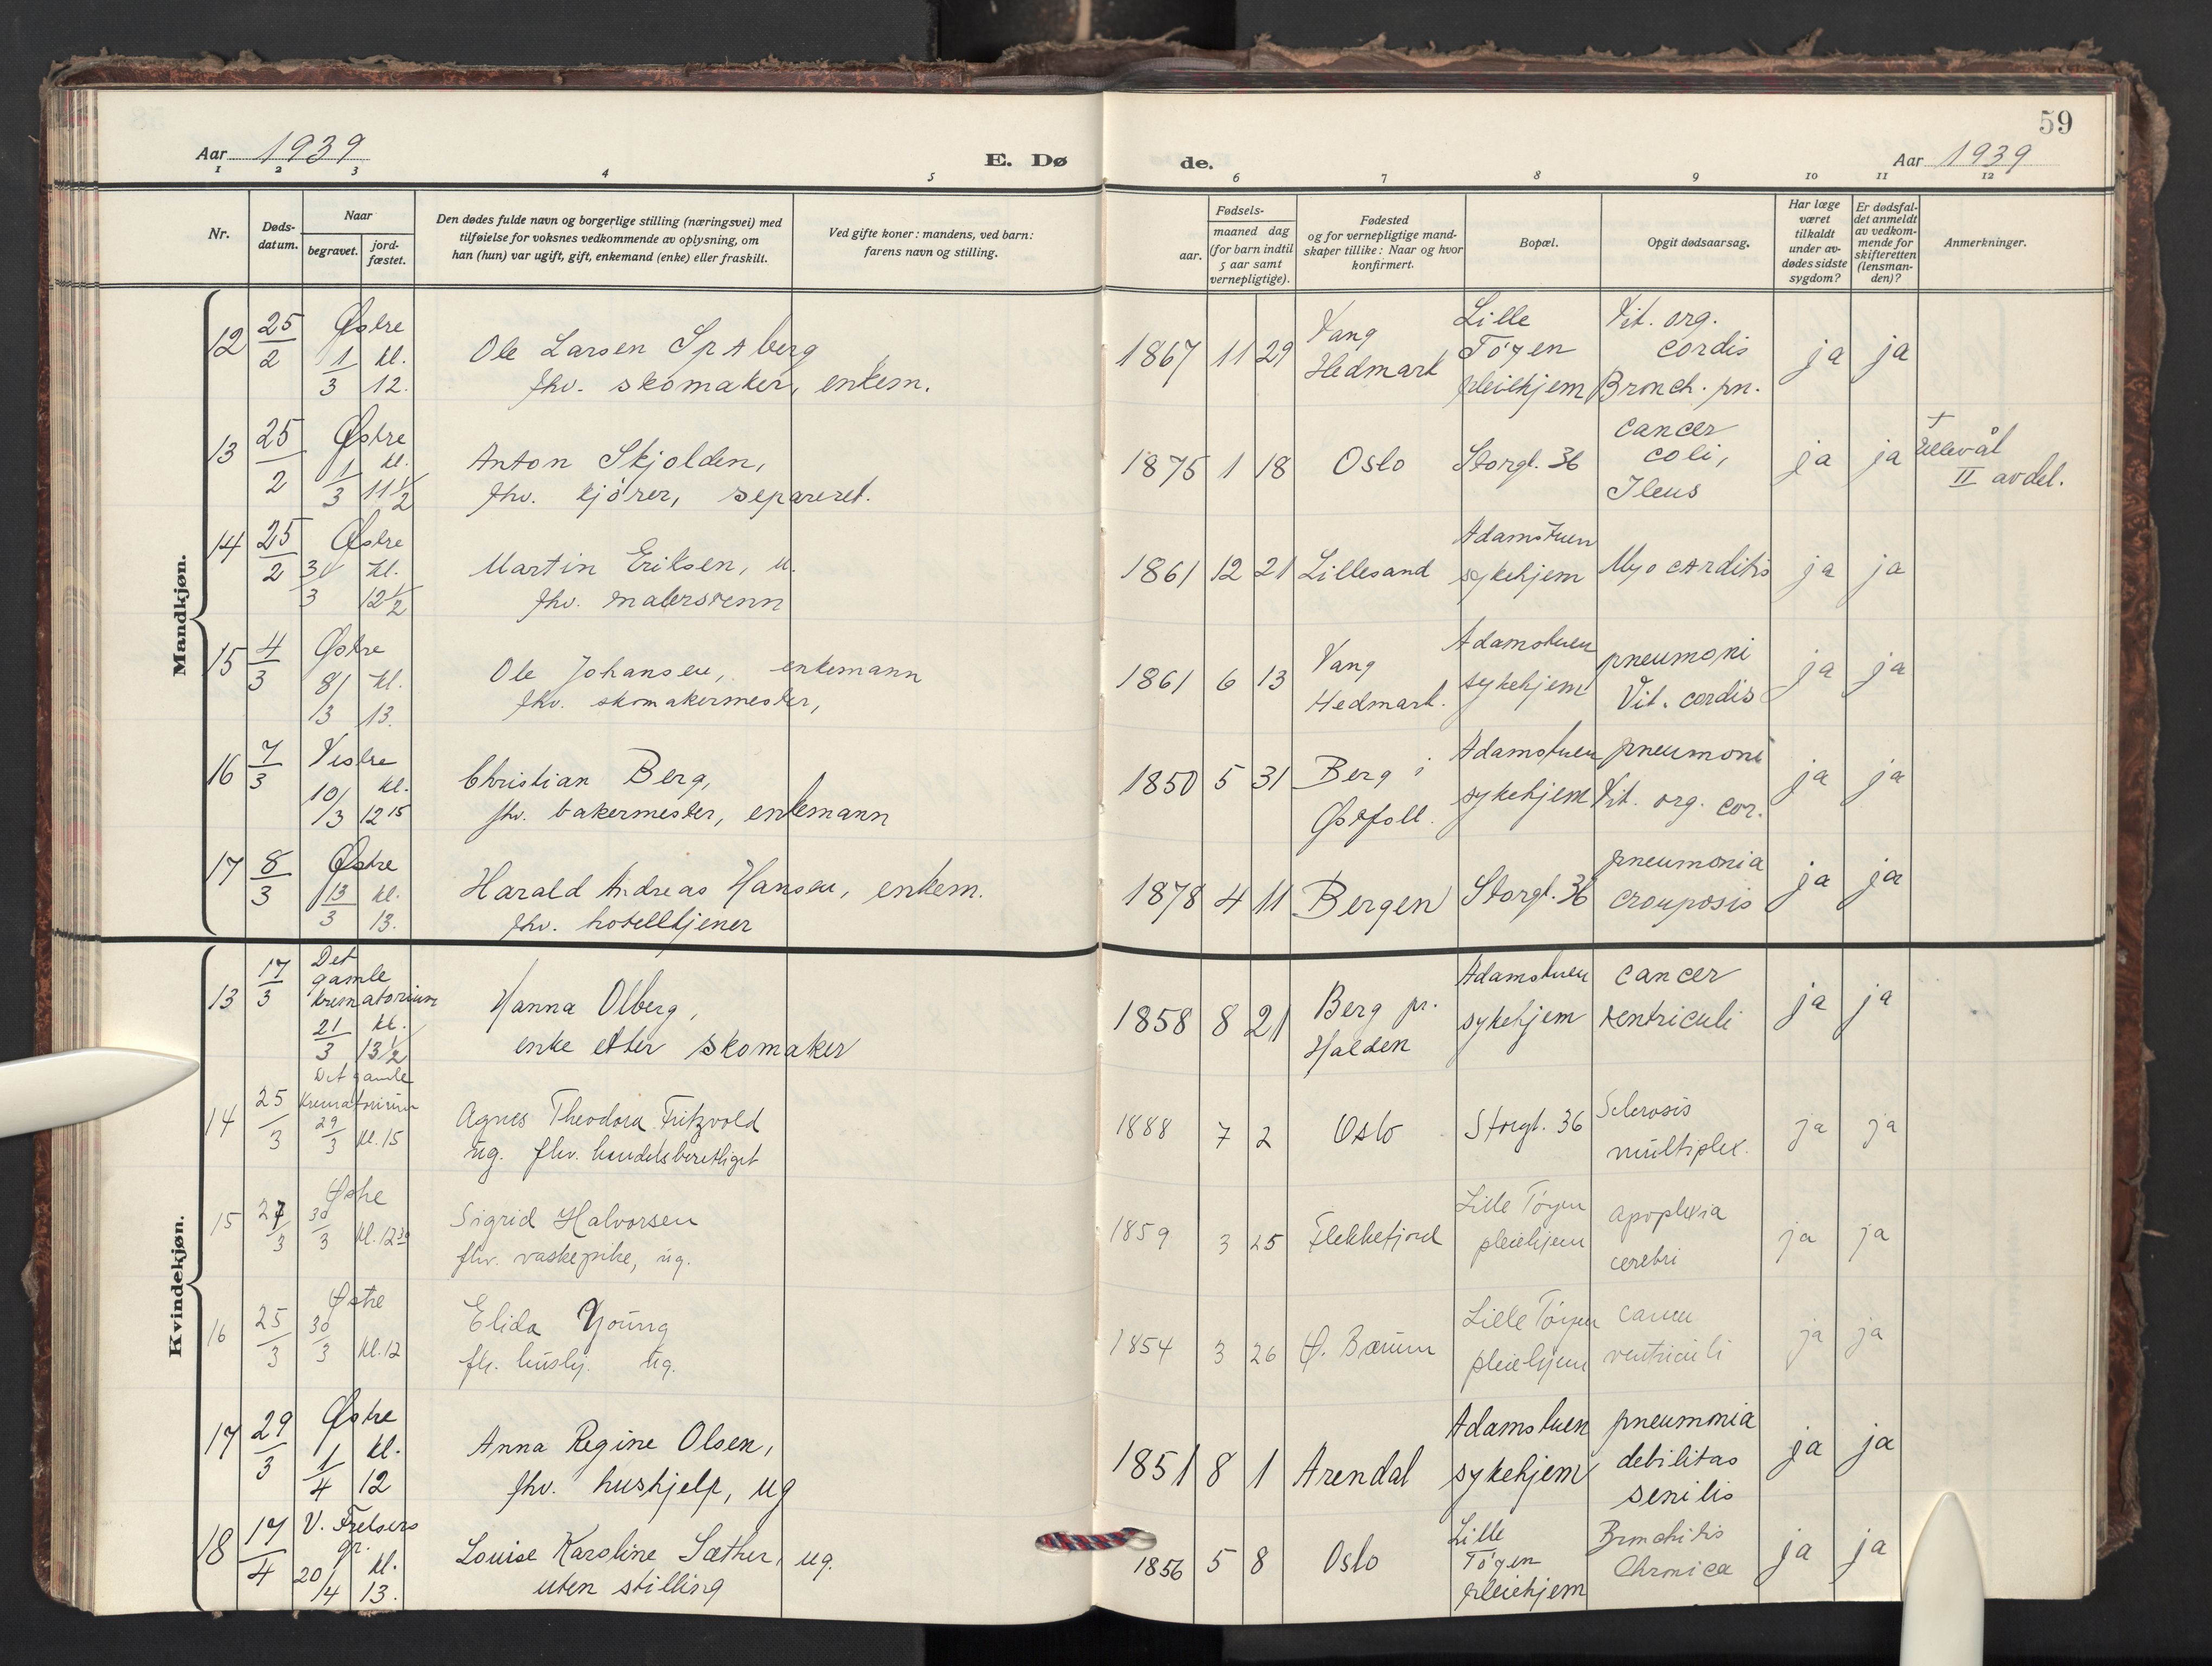 59
Aar 1939
E. Dø
de.
Aar 1939
1 2 3 4 5 6 7 8 9 10 11 12
Nr.
Døds-
datum.
Naar
begravet.
jord-
fæstet.
Den dødes fulde navn og borgerlige stilling (næringsvei) med
tilføielse for voksnes vedkommende av oplysning, om
han (hun) var ugift, gift, enkemand (enke) eller fraskilt.
Ved gifte koner: mandens, ved barn:
farens navn og stilling.
Fødsels-
aar.
maaned dag
(for barn indtil
5 aar samt
vernepligtige).
Fødested
og for vernepligtige mand-
skaper tillike: Naar og hvor
konfirmert.
Bopæl.
Opgit dødsaarsag.
Har læge
været
tilkaldt
under av-
dødes sidste
sygdom?
Er dødsfal-
det anmeldt
av vedkom-
mende for
skifteretten
(lensman-
den)?
Anmerkninger.
Mandkjøn.
12 25/2 Østre 1/3 kl. 12.
Ole Larsen
fhv. skomaker, enkem.
1867 11 29
Vang
Hedmark
Lille
Tøyen
pleiehjem
Vit. org.
cordis
Bronch. pn.
ja ja
13 25/2 Østre 1/3 kl. 11 1/2
Anton Skjolden,
fhv. kjører, separeret.
1875 1 18
Oslo
Storgt. 36
cancer
coli,
Ileus
ja ja
+
Ullevål
II avdel.
14 25/2 Østre 3/3 kl. 12 1/2
Martin Eriksen, u.
fhv. malersvenn
1861 12 21
Lillesand
Adamstuen
sykehjem
Myocarditis
ja ja
15 4/3 Østre 8/3 kl. 13.
Ole Johansen, enkemann
fhv. skomakermester,
1861 6 13
Vang
Hedmark.
Adamstuen
sykehjem
pneumoni
Vit. cordis
ja ja
16 7/3 Vestre 10/3 kl. 12 15
Christian Berg,
fhv. bakermester, enkemann
1850 5 31
Berg i
Østfoll.
Adamstuen
sykehjem
pneumoni
Vit. org. cor.
ja ja
17 8/3 Østre 13/3 kl. 13.
Harald Andreas Hansen, enkem.
fhv. hotelltjener
1878 4 11
Bergen
Storgt. 36
pneumonia
crouposis
ja ja
Kvindekjøn.
13 17/3 Det
gamle
krematorium
21/3 kl. 13 1/2
Hanna Olberg,
enke etter skomaker
1858 8 21
Berg pr.
Halden
Adamstuen
sykehjem
cancer
ventriculi
ja ja
14 25/3 Det gamle
krematorium
29/3 kl. 15
Agnes Theodora Fritzvold
ug. fhv. handelsberettiget
1888 7 2
Oslo
Storgt. 36
Sclerosis
multiplex.
ja ja
15 27/3 Østre 30/3 kl. 12 30
Sigrid Halvorsen
fhv. vaskepike, ug.
1859 3 25
Flekkefjord
Lille Tøyen
pleiehjem
apoplexia
cerebri
ja ja
16 25/3 Østre 30/3 kl. 12
Elida Young
fh. hushj. ug.
1854 3 26
Ø. Bærum
Lille Tøyen
pleiehjem
cancer
ventriculi
ja ja
17 29/3 Østre 1/4 kl. 12
Anna Regine Olsen,
fhv. hushjelp, ug
1851 8 1
Arendal
Adamstuen
sykehjem
pneumonia
debilitas
senilis
ja ja
18 17/4 V. Frelsers
gr.
20/4 kl. 13.
Louise Karoline Sæther, ug.
uten stilling
1856 5 8
Oslo
Lille
Tøyen
pleiehjem
Bronchitis
Chronica
ja ja